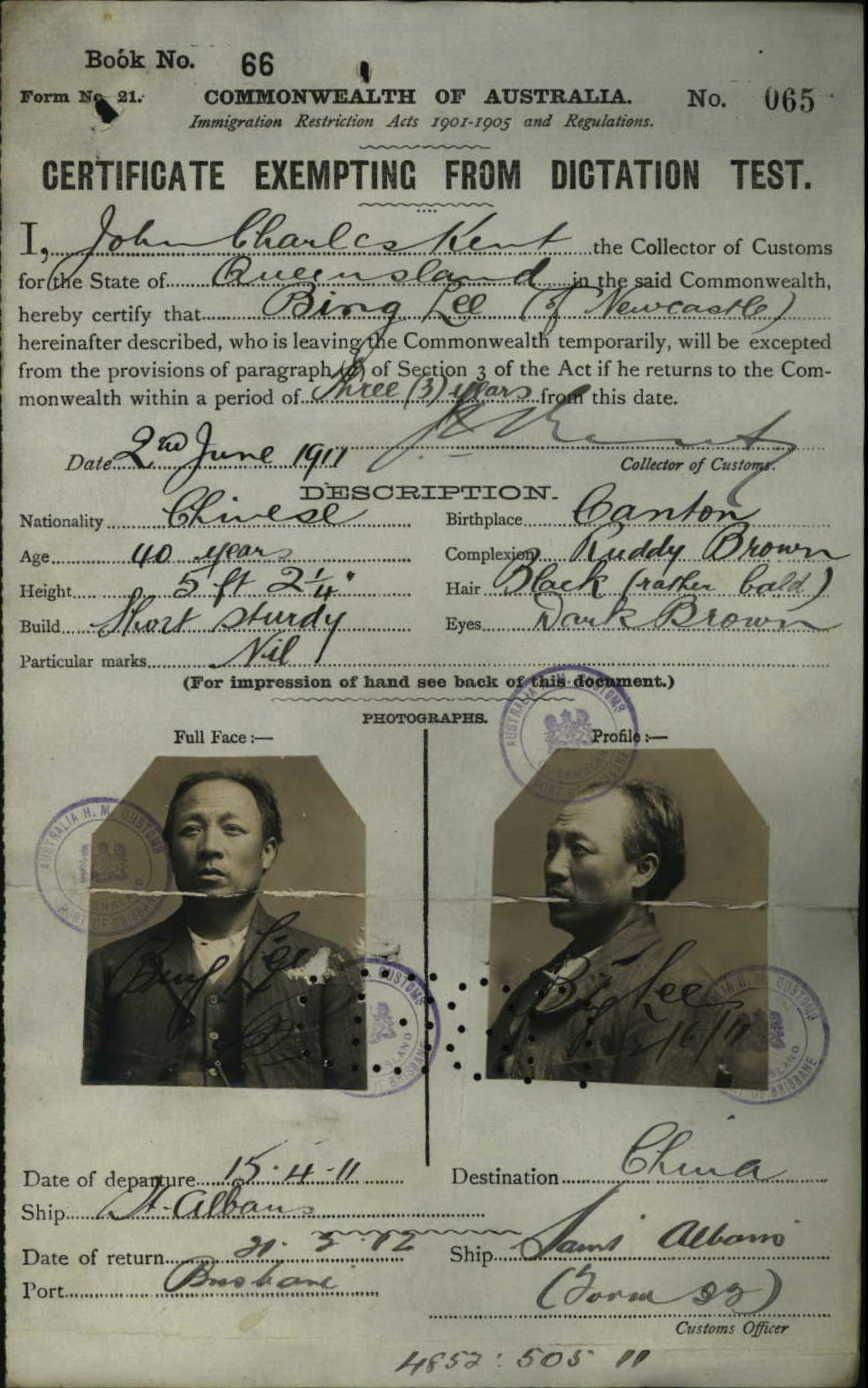 Book No. 66
Form No. 21. COMMONWEALTH OF AUSTRALIA. No. 065
Immigration Restriction Acts 1901-1905 and Regulations.
CERTIFICATE EXEMPTING FROM DICTATION TEST.
I, John Charles Kent the Collector of Customs
for the State of Queensland in the said Commonwealth,
hereby certify that Bing Lee (of Newcastle)
hereinafter described, who is leaving the Commonwealth temporarily, will be excepted
from the provisions of paragraph of Section 3 of the Act if he returns to the Com-
monwealth within a period of three (3) years from this date.
Date 2nd June 1911
Collector of Customs.
DESCRIPTION.
Nationality Chinese Birthplace Canton
Age 40 years Complexion Ruddy Brown
Height 5 ft 2¼" Hair Black (rather bald)
Build Short sturdy Eyes Dark Brown
Particular marks Nil
(For impression of hand see back of this document.)
PHOTOGRAPHS.
Full Face :— Profile :—
AUSTRALIA H. M. CUSTOMS
PORT OF BRISBANE
Bing Lee
Bing Lee
Date of departure 15.4.11 Destination China
Ship St. Albans
Date of return 21.3.12 Ship Saint Albans
Port Brisbane (Form 32)
Customs Officer
4852 : 505 11